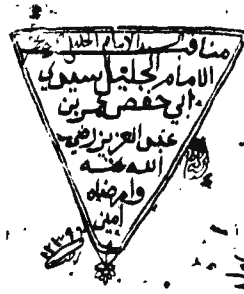 مناقب السيد الامام الجليل
الامام الجليل سيدي
ابي حفص عمر بن
عبد العزيز رضي
الله عنه
وارضاه
امين